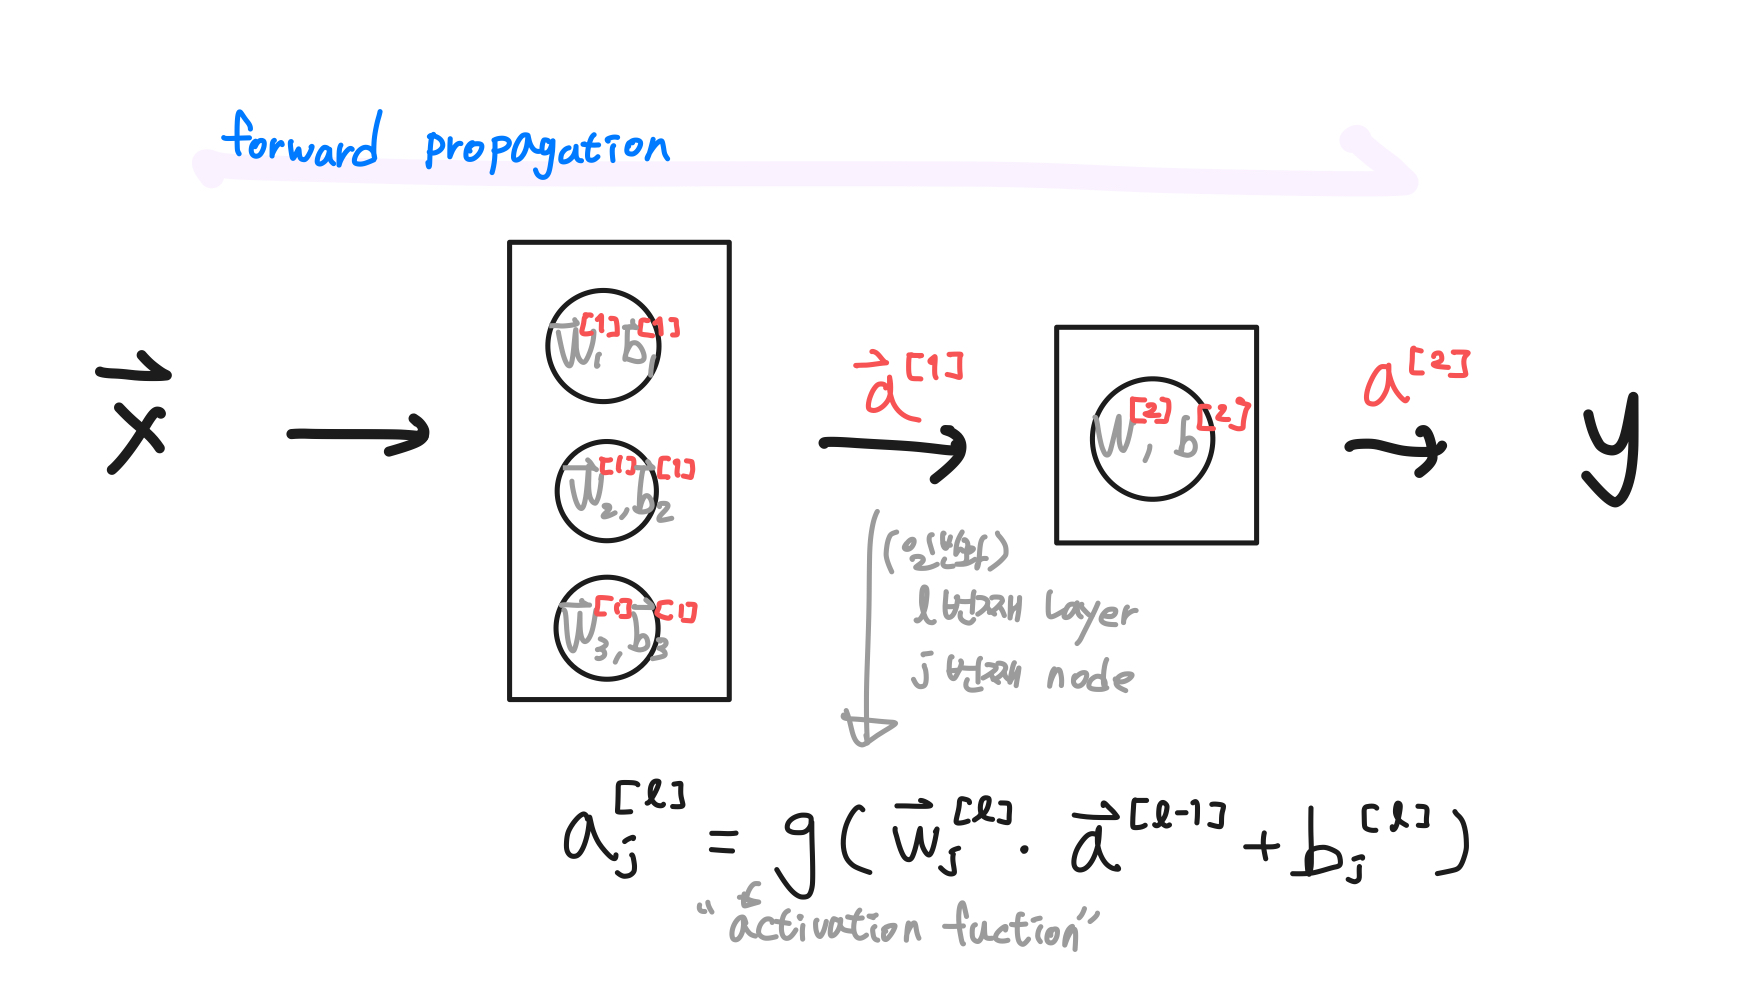 forward propagation
x⃗
w⃗₁^[1], b⃗₁^[1]
w⃗₂^[1], b⃗₂^[1]
w⃗₃^[1], b⃗₃^[1]
a⃗^[1]
w^[2], b^[2]
a^[2]
y
(일반화)
l번째 layer
j번째 node
a_j^[l] = g( w⃗_j^[l] · a⃗^[l-1] + b_j^[l] )
“activation fuction”